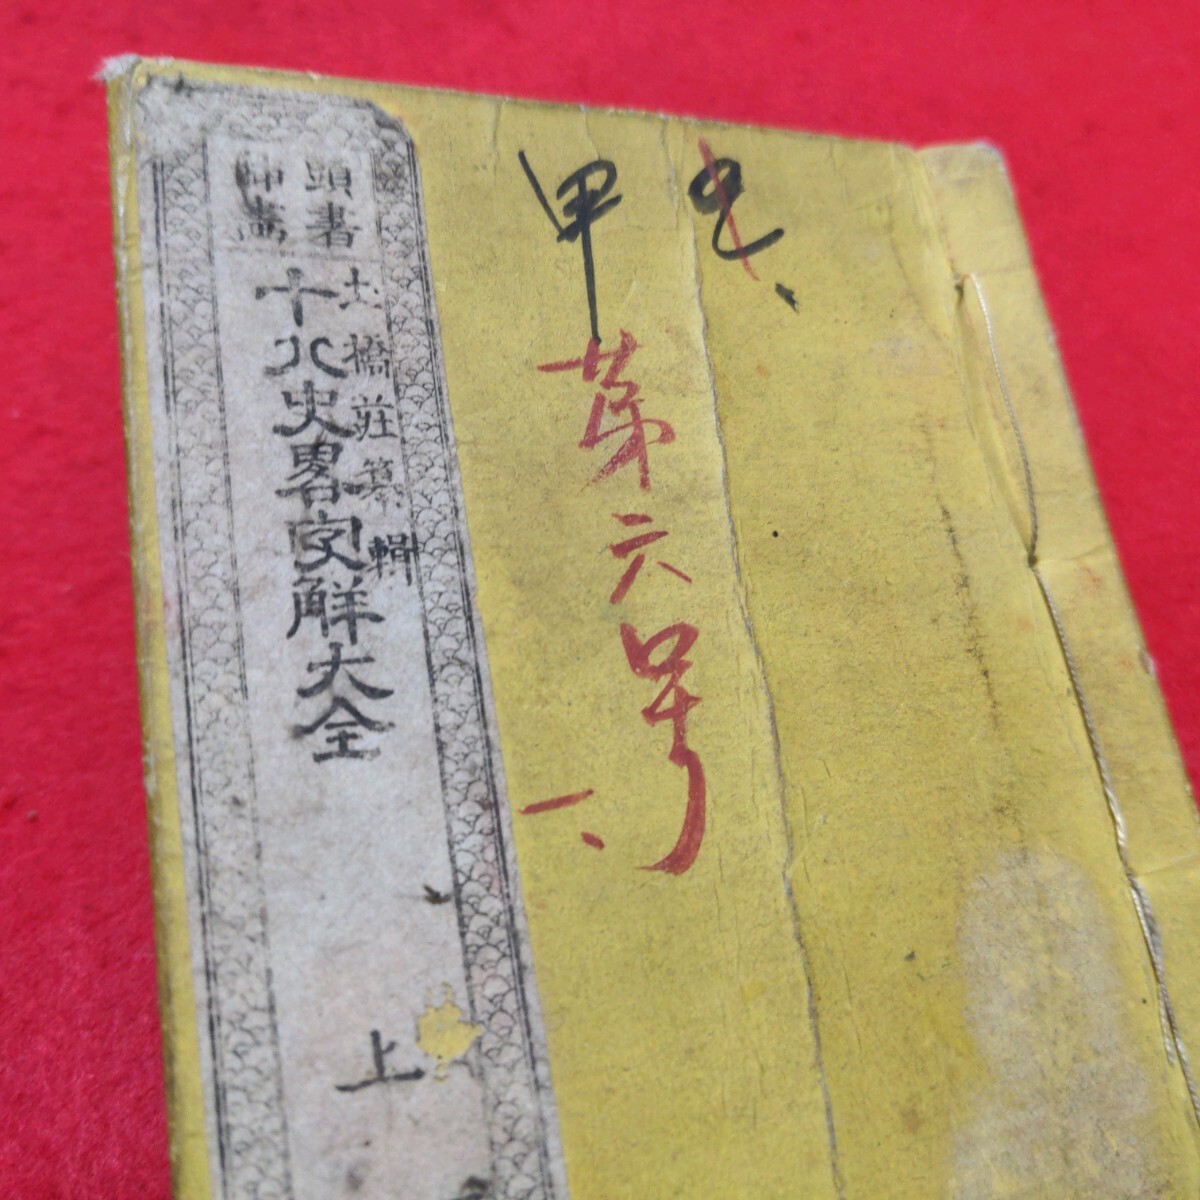 頭書
插畫
土橋荘纂輯
十八史畧字解大全
上
甲
第六号
一、